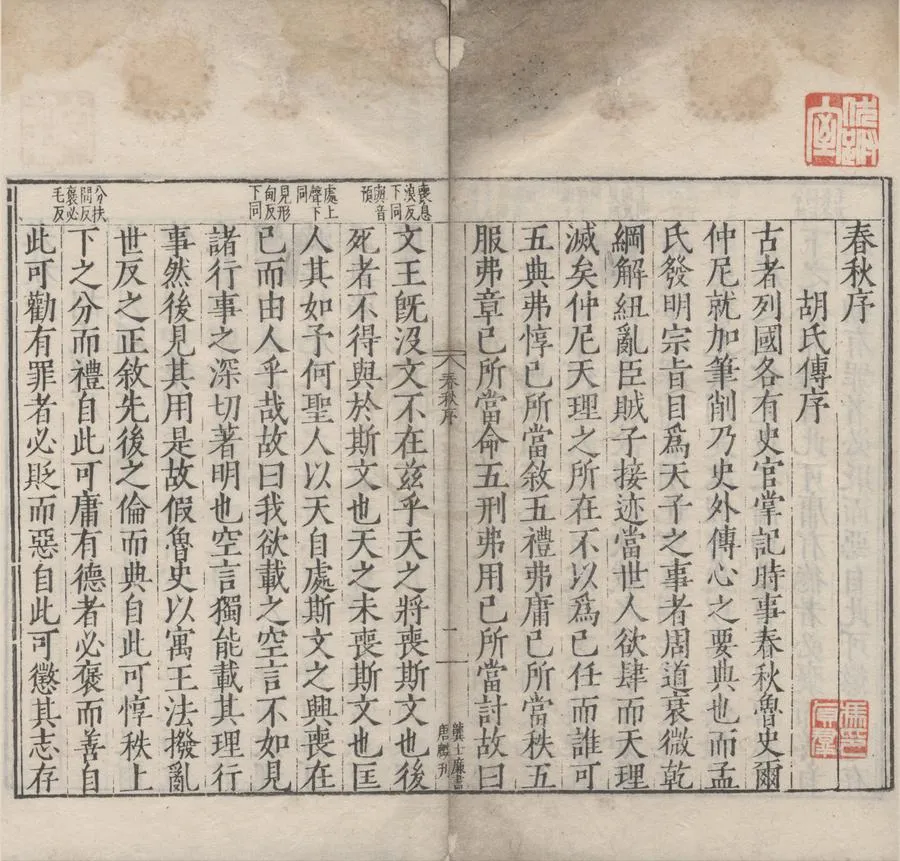 春秋序
胡氏傳序
古者列國各有史官掌記時事春秋魯史爾
仲尼就加筆削乃史外傳心之要典也而孟
氏發明宗旨目爲天子之事者周道衰微乾
綱解紐亂臣賊子接迹當世人欲肆而天理
滅矣仲尼天理之所在不以爲己任而誰可
五典弗惇己所當敘五禮弗庸己所當秩五
服弗章己所當命五刑弗用己所當討故曰
春秋序
一
龔士廉書
唐麟刊
喪息
浪反
下同
與音
預
文王旣沒文不在茲乎天之將喪斯文也後
死者不得與於斯文也天之未喪斯文也匡
處上
聲下
同
人其如予何聖人以天自處斯文之興喪在
見形
甸反
下同
己而由人乎哉故曰我欲載之空言不如見
諸行事之深切著明也空言獨能載其理行
事然後見其用是故假魯史以寓王法撥亂
世反之正敘先後之倫而典自此可惇秩上
分扶
問反
褒必
毛反
下之分而禮自此可庸有德者必褒而善自
此可勸有罪者必貶而惡自此可懲其志存